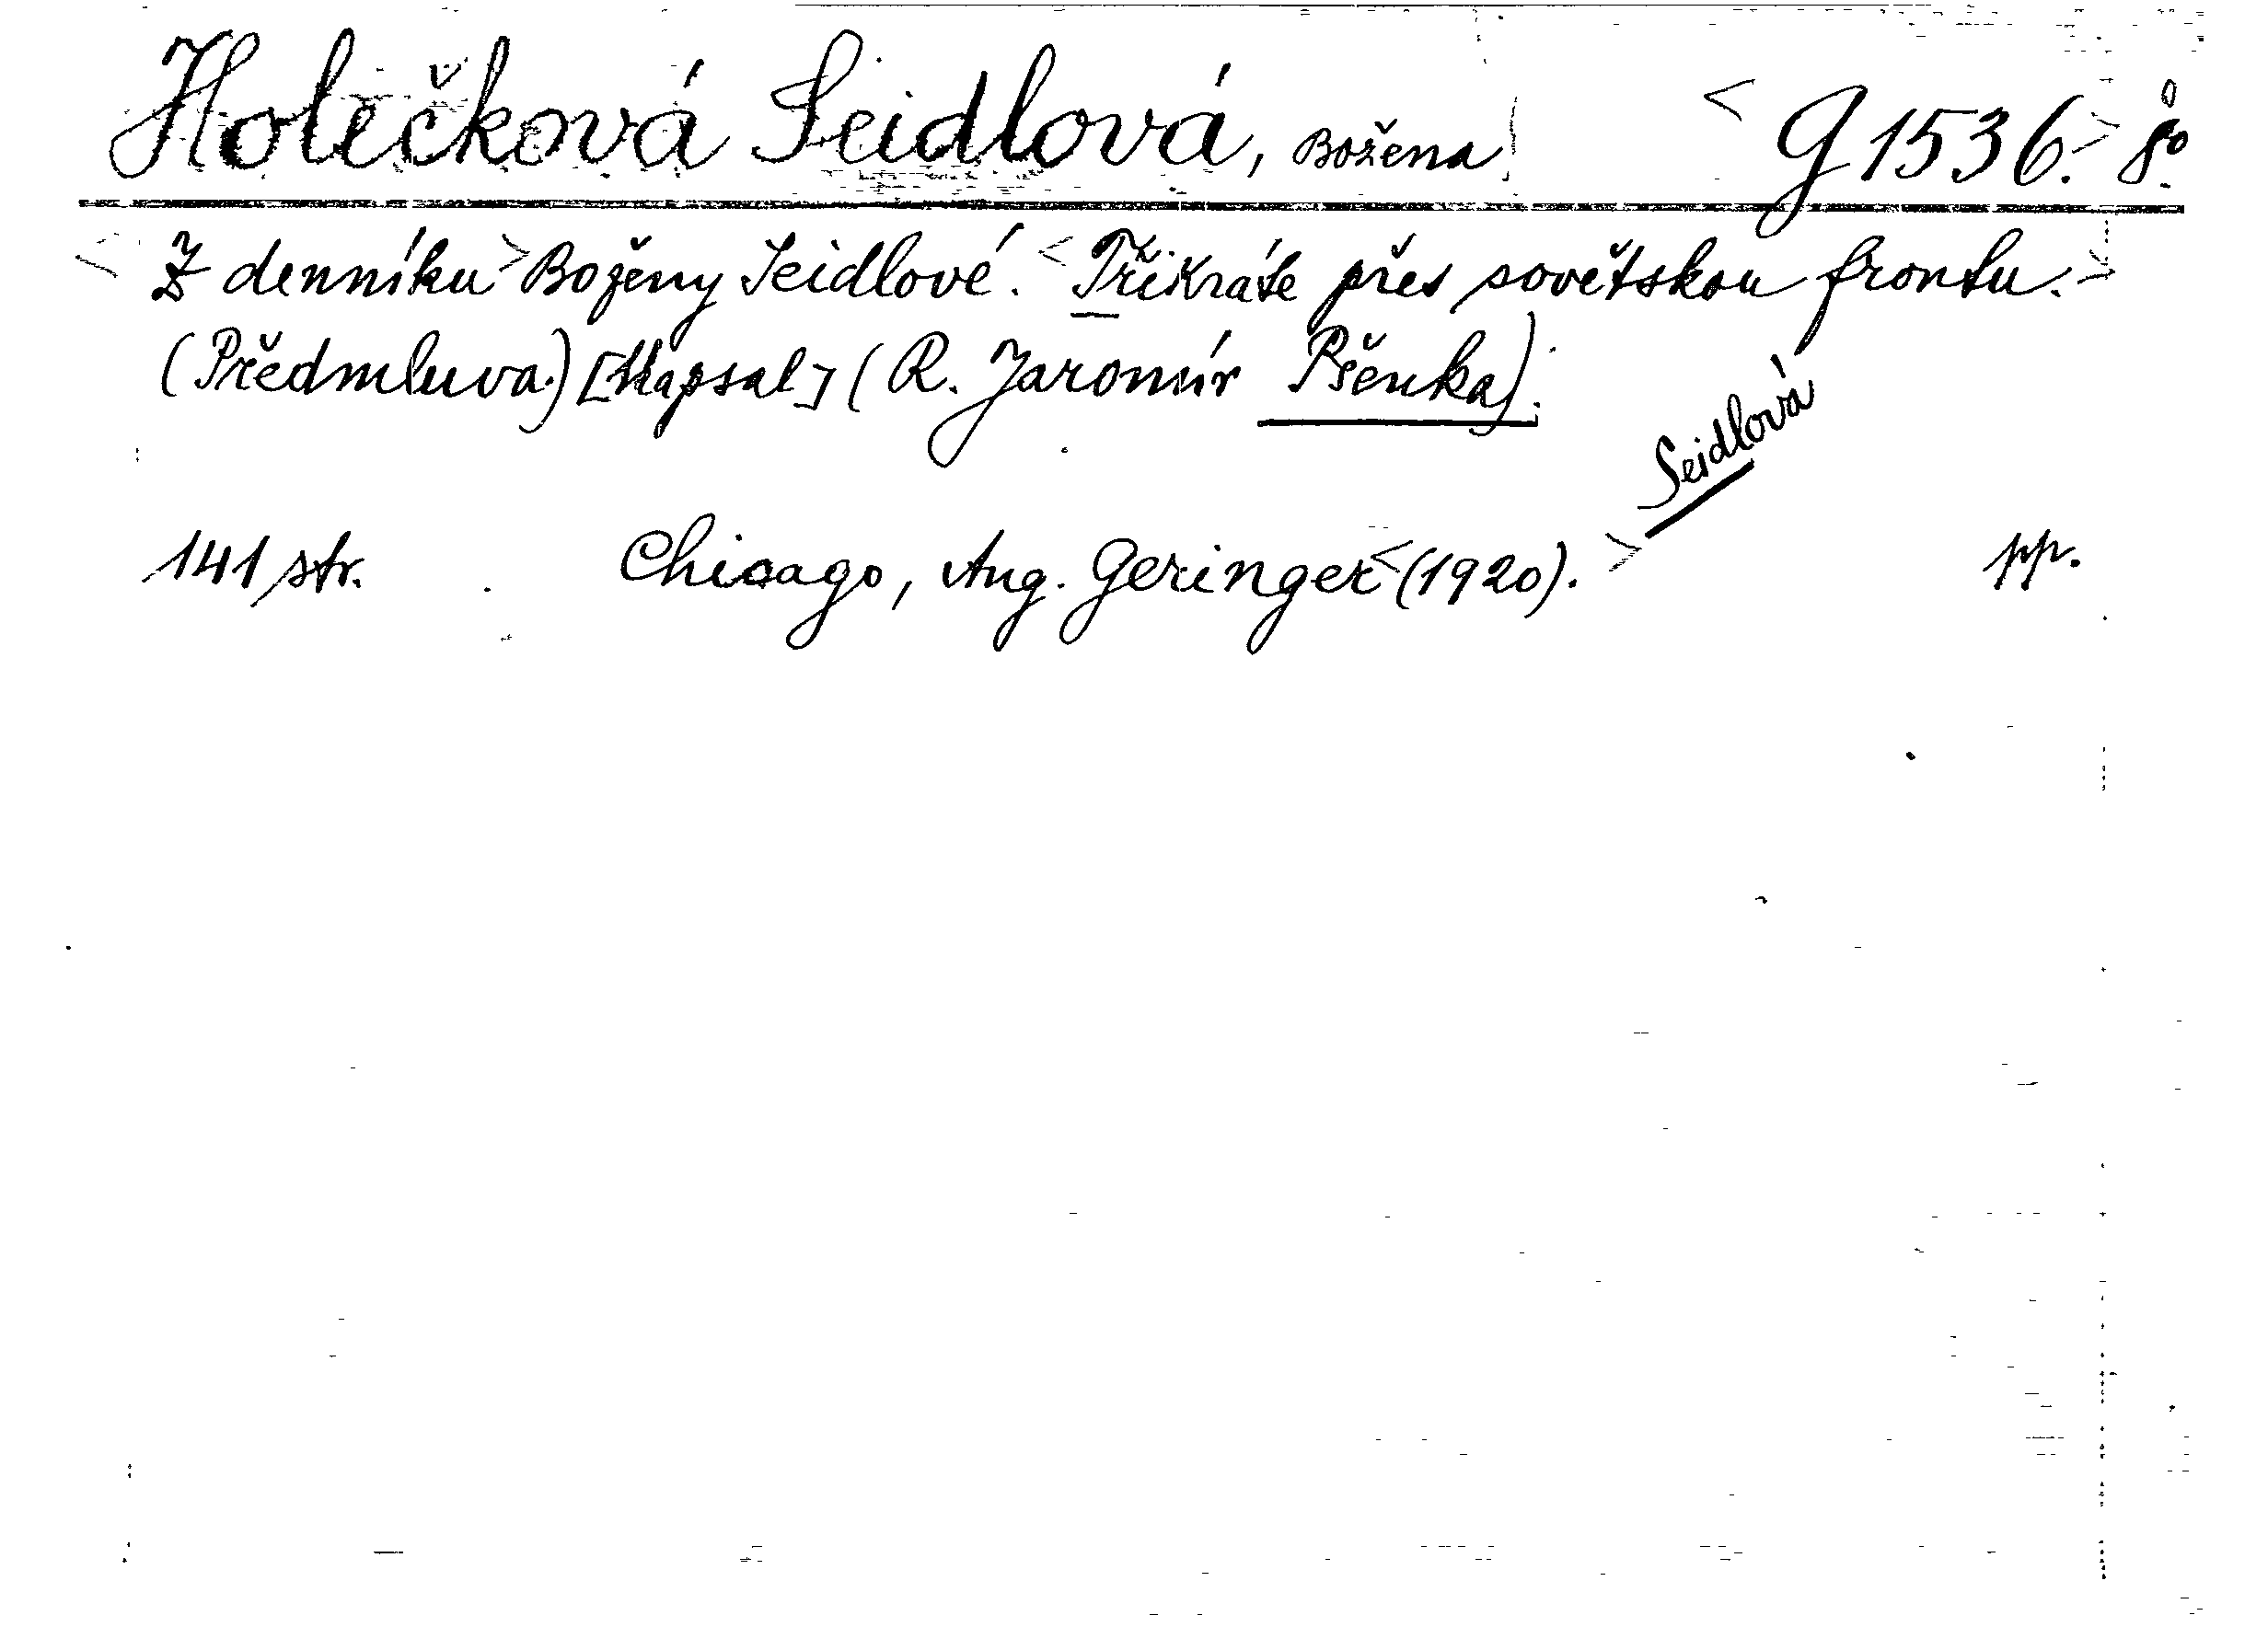 Holečková Seidlová, Božena < G 1536.> 8°
< Z denníku > Boženy Seidlové. < Třikráte přes sovětskou frontu. >
(Předmluva.) [Napsal] (R. Jaromír Pšenka).
Seidlová
141 str. Chicago, Aug. Geringer < (1920). > pp.